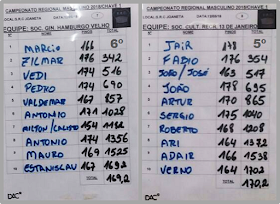 CAMPEONATO REGIONAL MASTER 2018/CHAVE 1
EQUIPE: SOC. GIN. HAMBURGO VELHO
MARCIO 166 6º
ZILMAR 176 342
VEDI 174 516
PEDRO 174 690
VALDEMAR 167 857
ANTONIO 171 1028
MILTON/CALISTO 154 1182
ANTONIO 174 1356
MAURO 169 1525
ESTANISLAU 167 1692
TOTAL
169,2
DAC
CAMPEONATO REGIONAL MASTER 2018/CHAVE 1
EQUIPE: SOC. CULT. RE. 13 DE JANEIRO
JAIR 178 5º
FADIO 176 354
JOÃO/JOSÉ 163 517
JOÃO 178 695
ARTUR 170 865
SERGIO 175 1040
ROBERTO 168 1208
ARI 164 1372
ADAIR 166 1538
VERNO 164 1702
TOTAL
170,2
DAC